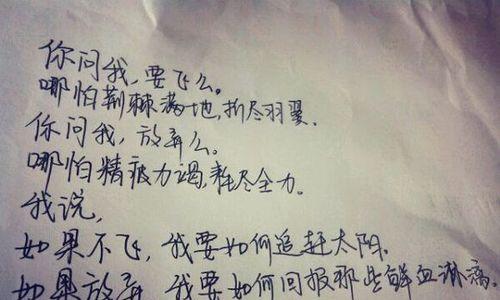 你问我，要飞么。
哪怕荆棘满地，折尽羽翼．
你问我，放弃么。
哪怕精疲力竭，耗尽全力．
我说，
如果不飞，我要如何追赶太阳．
如果放弃，我要如何回报那些鲜血淋漓。